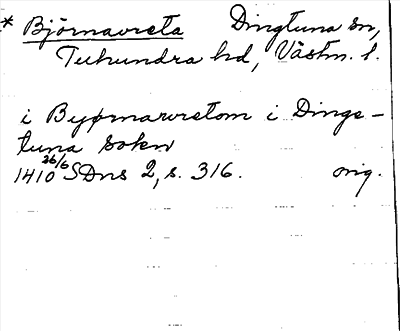 * Björnavreta Dingtuna sn,
Tuhundra hd, Västm. l.
i Byørnawretom i Dinge-
tuna sokn
1410 26/6 SDns 2, s. 316. orig.